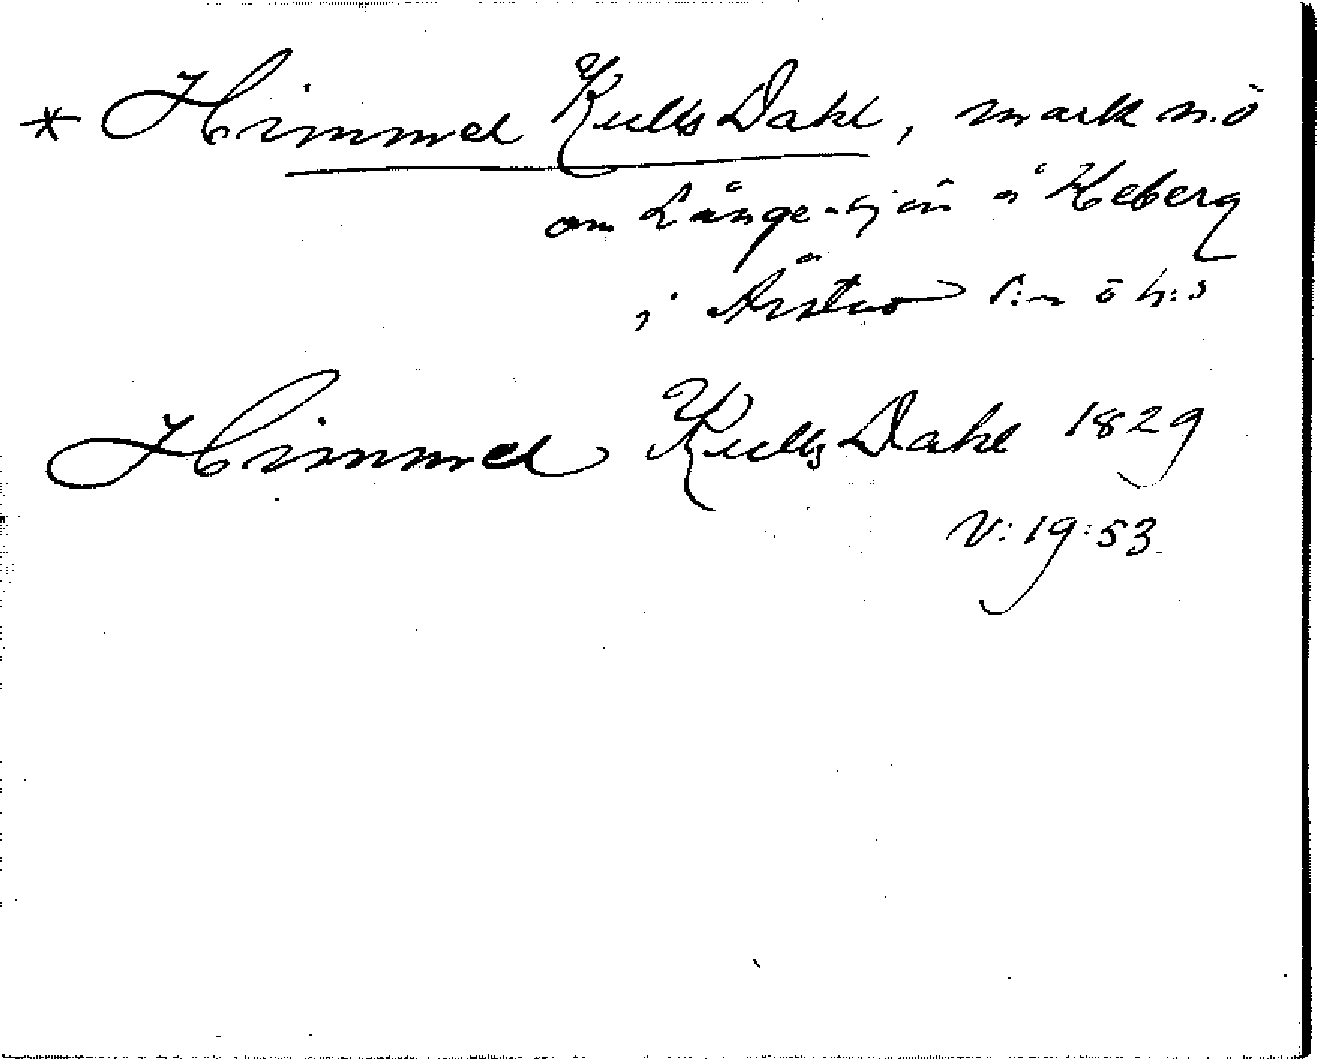 * Himmel Kulls Dahl, mark n.ö
om Långe-sjön å Heberg
i Årstad s:n ö h:s
Himmel Kulls Dahl 1829
V: 19:53